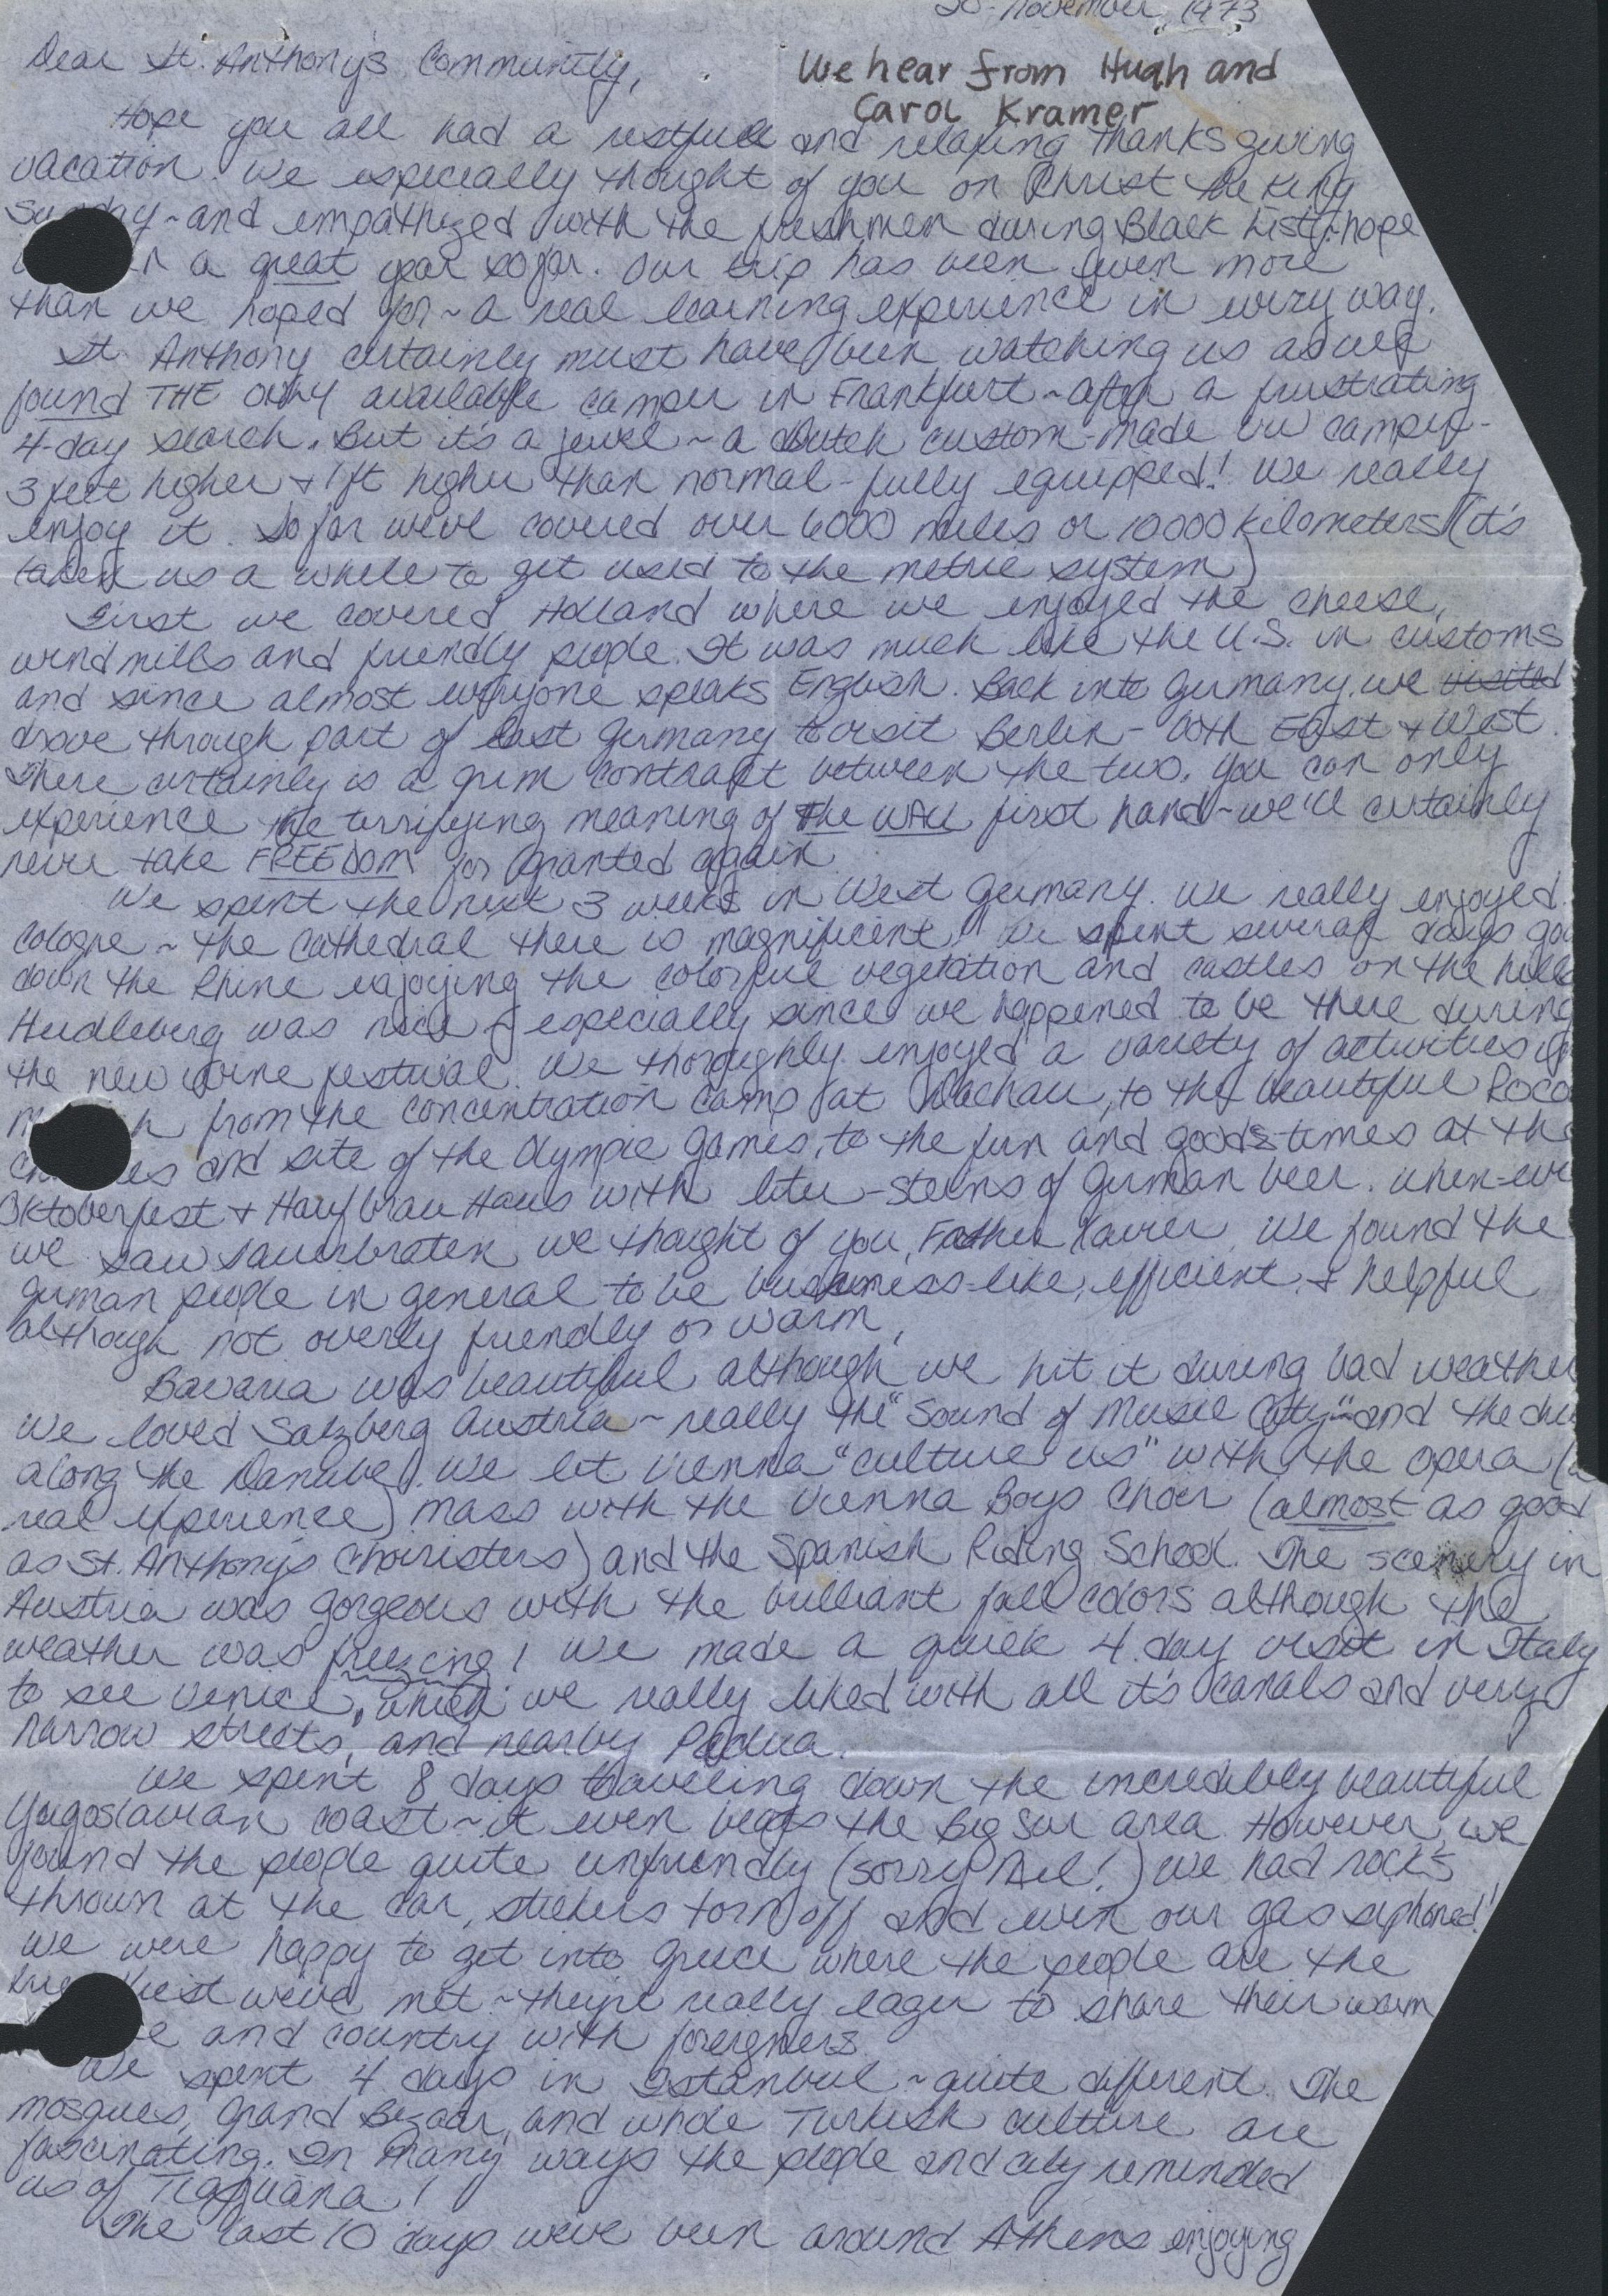 November, 1973
Dear St. Anthony's Community,
We hear from Hugh and
Carol Kramer
Hope you all had a restfull and relaxing thanksgiving
vacation. We especially thought of you on Christ the King
Sunday ~ and empathized with the freshmen during Black List. hope
a great year so far. Our trip has been even more
than we hoped for ~ a real learning experience in every way.
St. Anthony certainly must have been watching us as we
found THE ONLY available camper in Frankfurt ~ after a frustrating
4-day search. But it's a jewel ~ a Dutch custom-made VW camper -
3 feet higher + 1 ft higher than normal - fully equipped! We really
enjoy it. So far we've covered over 6000 miles or 10000 kilometers (it's
taken us a while to get used to the metric system)
First we covered Holland where we enjoyed the cheese,
windmills and friendly people. It was much like the U.S. in customs
and since almost everyone speaks English. Back into Germany, we visited
drove through part of East Germany to visit Berlin - both East + West.
There certainly is a grim contrast between the two. You can only
experience the terrifying meaning of the WALL first hand ~ we'll certainly
never take FREEDOM for granted again.
We spent the next 3 weeks in West Germany. We really enjoyed
Cologne ~ the Cathedral there is magnificent! We spent several days
down the Rhine enjoying the colorful vegetation and castles on the hills
Heidleberg was nice ~ especially since we happened to be there during
the new wine festival. We thoroughly enjoyed a variety of activities
from the concentration camp at Dachau, to the beautiful Roco
and site of the Olympic Games, to the fun and good times at the
Oktoberfest + Haufbrau Haus with liter-steins of German beer. When-ever
we saw sauerbraten we thought of you, Father Xavier. We found the
German people in general to be business-like, efficient, + helpful
although not overly friendly or warm.
Bavaria was beautiful although we hit it during bad weather
We loved Salzberg Austria ~ really the "Sound of Music City" ~ and the
along the Danube. We let Vienna "culture us" with the opera (a
real experience) mass with the Vienna Boys Choir (almost as good
as St. Anthony's Choiristers) and the Spanish Riding School. The scenery in
Austria was gorgeous with the brilliant fall colors although the
weather was freezing! We made a quick 4 day visit in Italy
to see Venice, which we really liked with all it's canals and very
narrow streets, and nearby Padua.
We spent 8 days traveling down the incredibly beautiful
Yugoslavian coast ~ it even beats the Big Sur area. However, we
found the people quite unfriendly (sorry Mel!) We had rocks
thrown at the car, stickers torn off and even our gas siphoned!
We were happy to get into Greece where the people are the
we've met ~ they're really eager to share their warm
and country with foreigners.
We spent 4 days in Istanbul ~ quite different. The
mosques, Grand Bazaar, and whole Turkish culture are
fascinating. In many ways the people and city reminded
us of Tiajuana!
The last 10 days we've been around Athens enjoying